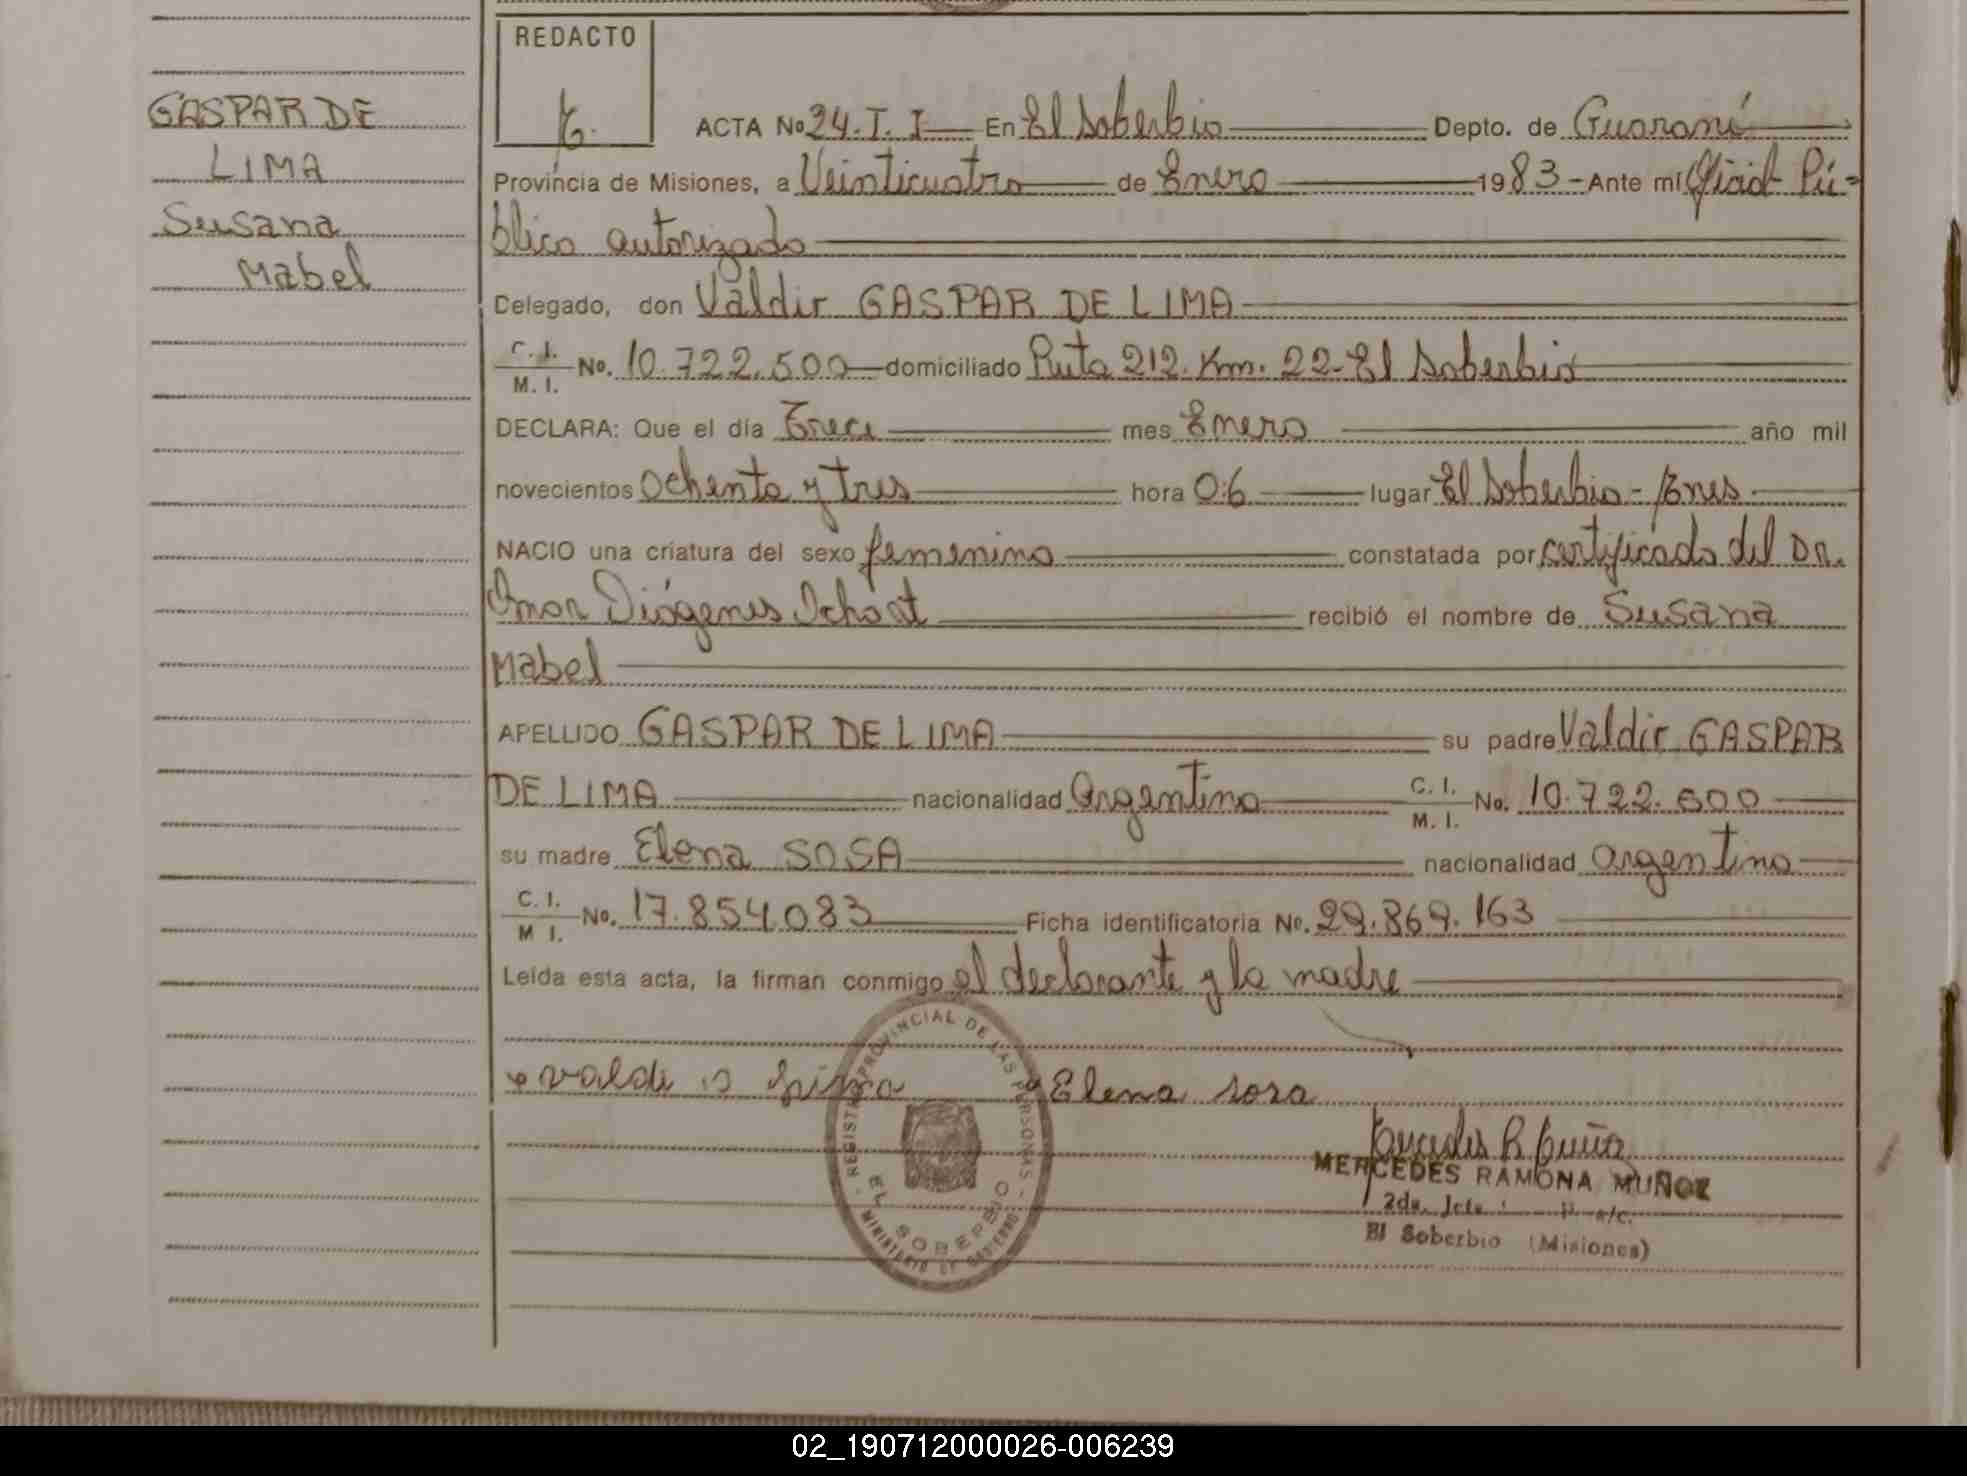 REDACTO
GASPAR DE
LIMA
Susana
Mabel
ACTA No 24. T. I En El Soberbio Depto. de Guaraní
Provincia de Misiones, a Veinticuatro de Enero 1983 - Ante mí Oficial Pú-
blico autorizado
Delegado, don Valdir GASPAR DE LIMA
C. I. / M. I. No. 10.722.500 domiciliado Ruta 212. Km. 22 - El Soberbio
DECLARA: Que el día Trece mes Enero año mil
novecientos ochenta y tres hora 06 lugar El Soberbio -
NACIO una criatura del sexo femenino constatada por certificado del Dr.
Omar Diógenes recibió el nombre de Susana
Mabel
APELLIDO GASPAR DE LIMA su padre Valdir GASPAR
DE LIMA nacionalidad Argentina C. I. / M. I. No. 10.722.500
su madre Elena SOSA nacionalidad argentina
C. I. / M I. No. 17.854.083 Ficha identificatoria No. 29.869.163
Leída esta acta, la firman conmigo el declarante y la madre
Elena sosa
REGISTRO PROVINCIAL DE LAS PERSONAS
EL SOBERBIO
MINISTERIO DE GOBIERNO
MERCEDES RAMONA MUÑOZ
2da. a/c.
El Soberbio (Misiones)
02_190712000026-006239